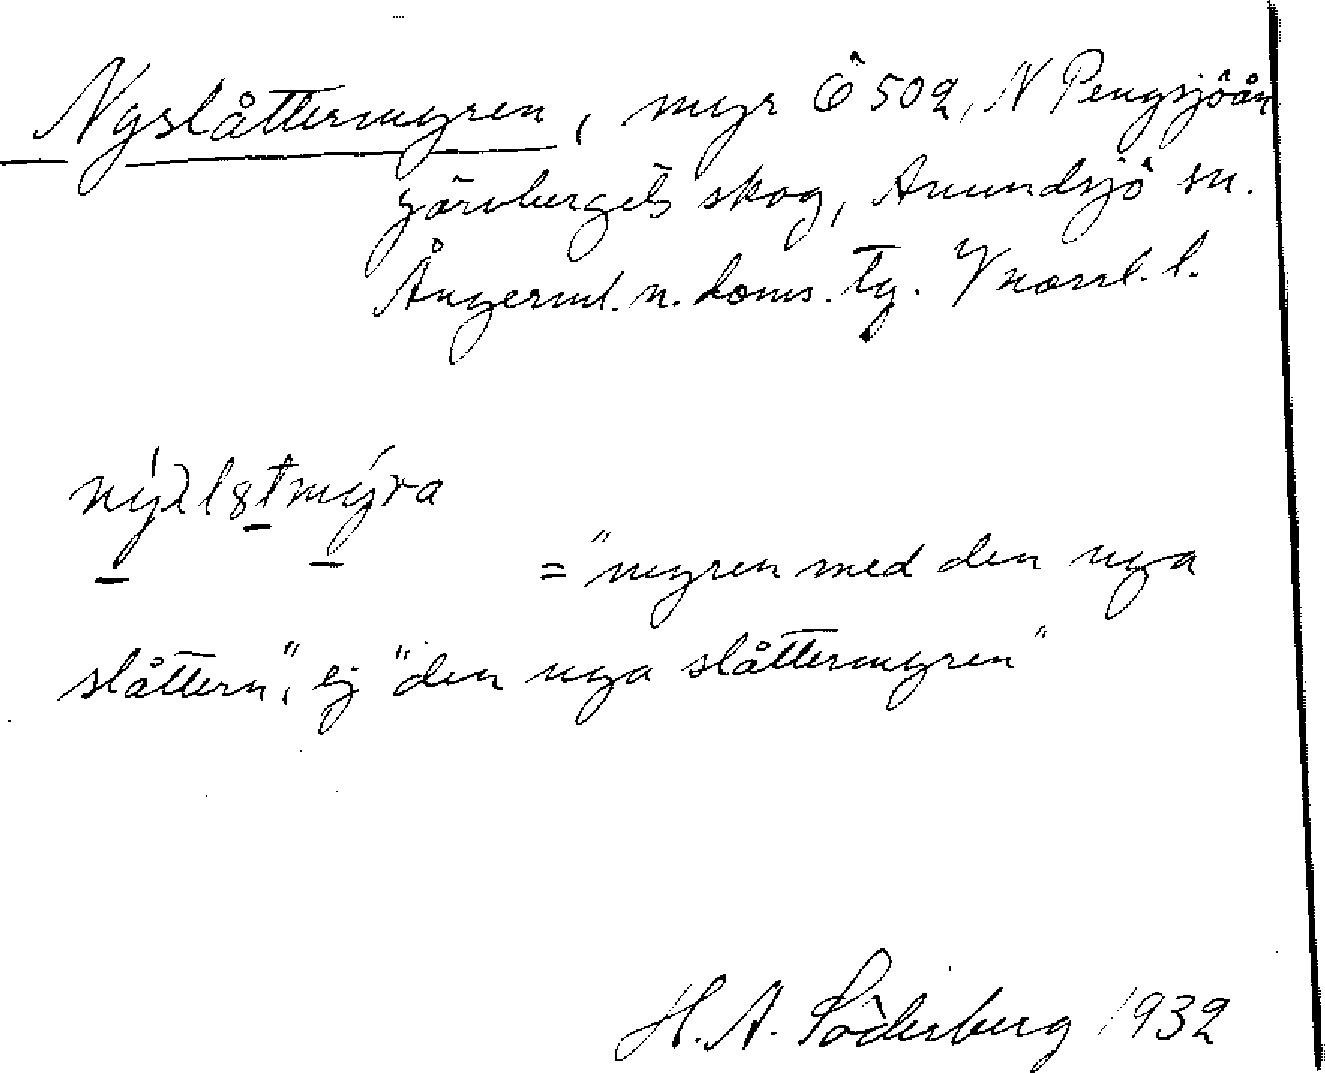 Nyslåttermyren, myr Ö 502, N Pengsjöån
Järvbergets skog, Anundsjö sn.
Ångerml. n. doms. tg. Vnorrl. l.
= "myren med den nya
slåttern", ej "den nya slåttermyren"
H. A. Söderberg 1932